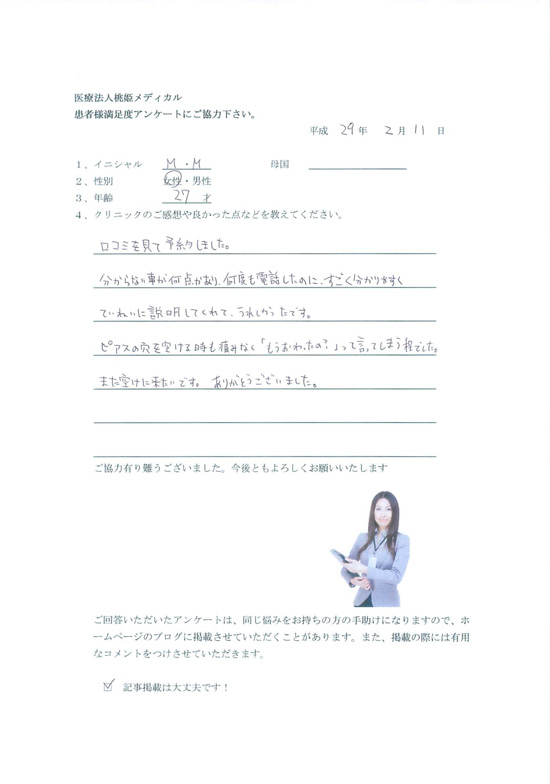 医療法人桃姫メディカル
患者様満足度アンケートにご協力下さい。
平成 29 年 2 月 11 日
1、イニシャル M・M 母国
2、性別 女性・男性
3、年齢 27 才
4、クリニックのご感想や良かった点などを教えてください。
口コミを見て予約しました。
分からない事が何点かあり、何度も電話したのに、すごく分かりやすく
ていねいに説明してくれて、うれしかったです。
ピアスの穴を空ける時も痛みなく「もうおわったの?」って言ってしまう程でした。
また空けに来たいです。 ありがとうございました。
ご協力有り難うございました。今後ともよろしくお願いいたします
ご回答いただいたアンケートは、同じ悩みをお持ちの方の手助けになりますので、ホ
ームページのブログに掲載させていただくことがあります。また、掲載の際には有用
なコメントをつけさせていただきます。
☑ 記事掲載は大丈夫です！